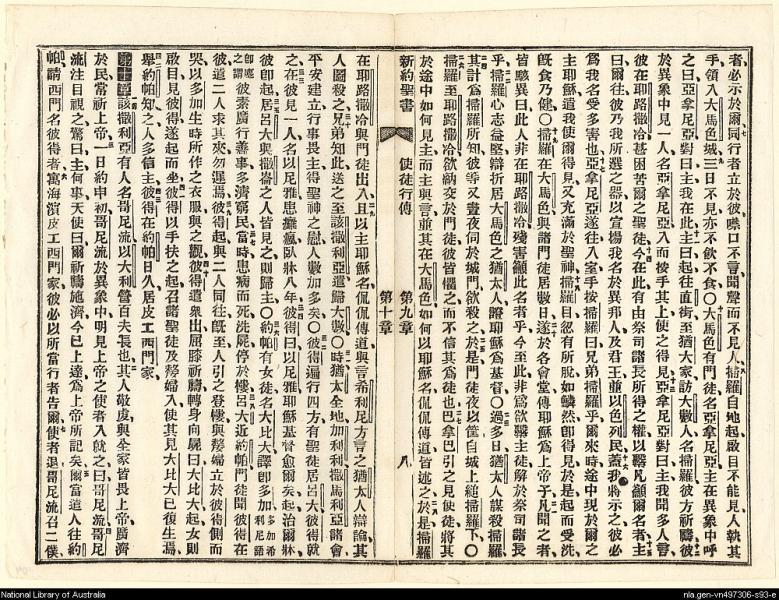 者必示於爾同行者立於彼噤口不言聞聲而不見人掃羅自地起啟目不能見人執其
手領入大馬色城三日不見亦不飲不食○大馬色有門徒名亞拿尼亞主在異象中呼
之曰亞拿尼亞對曰主我在此主曰起往直街至猶大家訪大數人名掃羅彼方祈禱彼
於異象中見一人名亞拿尼亞入而按手其上使之得見亞拿尼亞對曰主我聞多人言
彼在耶路撒冷甚困苦爾之聖徒今在此有由祭司諸長所得之權以繫凡籲爾名者主
曰爾往彼乃我所選之器以宣揚我名於異邦人及君王並以色列民蓋我將示之彼必
爲我名受多害也亞拿尼亞遂往入室手按掃羅曰兄弟掃羅乎爾來時途中現於爾之
主耶穌遣我使爾得見又充滿於聖神掃羅目忽有所脫如鱗然即得見於是起而受洗
既食乃健○掃羅在大馬色與諸門徒居數日遂於各會堂傳耶穌爲上帝子凡聞之者
皆駭異曰此人非在耶路撒冷殘害籲此名者乎今至此非爲欲繫主徒解於祭司諸長
乎掃羅心志益堅辯折居大馬色之猶太人證耶穌爲基督○過多日猶太人謀殺掃羅
其計爲掃羅所知彼等又晝夜伺於城門欲殺之於是門徒夜以筐自城上縋掃羅下○
掃羅至耶路撒冷欲納交於門徒彼皆懼之而不信其爲徒也巴拿巴引之見使徒將其
於途中如何見主而主與言並其在大馬色如何以耶穌名侃侃傳道皆述之於是掃羅
新約聖書
使徒行傳
第九章
第十章
八
在耶路撒冷與門徒出入且以主耶穌名侃侃傳道與言希利尼方言之猶太人辯論其
人圖殺之兄弟知此送之至該撒利亞遣歸大數○時猶太全地加利利撒馬利亞諸會
平安建立行事畏主得聖神之慰人數加多矣○彼得遍行四方有聖徒居呂大彼得就
之在彼見一人名以尼雅患癱瘋臥牀八年彼得曰以尼雅耶穌基督愈爾矣起治爾牀
彼即起居呂大與撒崙之人皆見之則歸主○約帕有女徒名大比大譯即多加
多加希利尼語
即麀之謂
彼素廣行善事多濟窮民當時患病而死洗屍停於樓呂大近約帕門徒聞彼得在
彼遣二人求其來勿遲焉彼得起與二人同往既至人引之登樓與嫠婦立於彼得側而
哭以多加生時所作之衣服與之觀彼得遣衆出屈膝祈禱轉身向屍曰大比大起女則
啟目見彼得遂起而坐彼得以手扶之起召諸聖徒及嫠婦入使其見大比大已復生焉
舉約帕知之人多信主彼得在約帕日久居皮工西門家
第十章該撒利亞有人名哥尼流以大利營百夫長也其人敬虔與全家皆畏上帝廣濟
於民常祈上帝一日約申初哥尼流於異象中明見上帝之使者入就之曰哥尼流哥尼
流注目視之驚曰主何事天使曰爾祈禱施濟今已上達爲上帝所記矣爾當遣人往約
帕請西門名彼得者寓海濱皮工西門家彼必以所當行者告爾使者退哥尼流召二僕
National Library of Australia
nla.gen-vn497306-s93-e